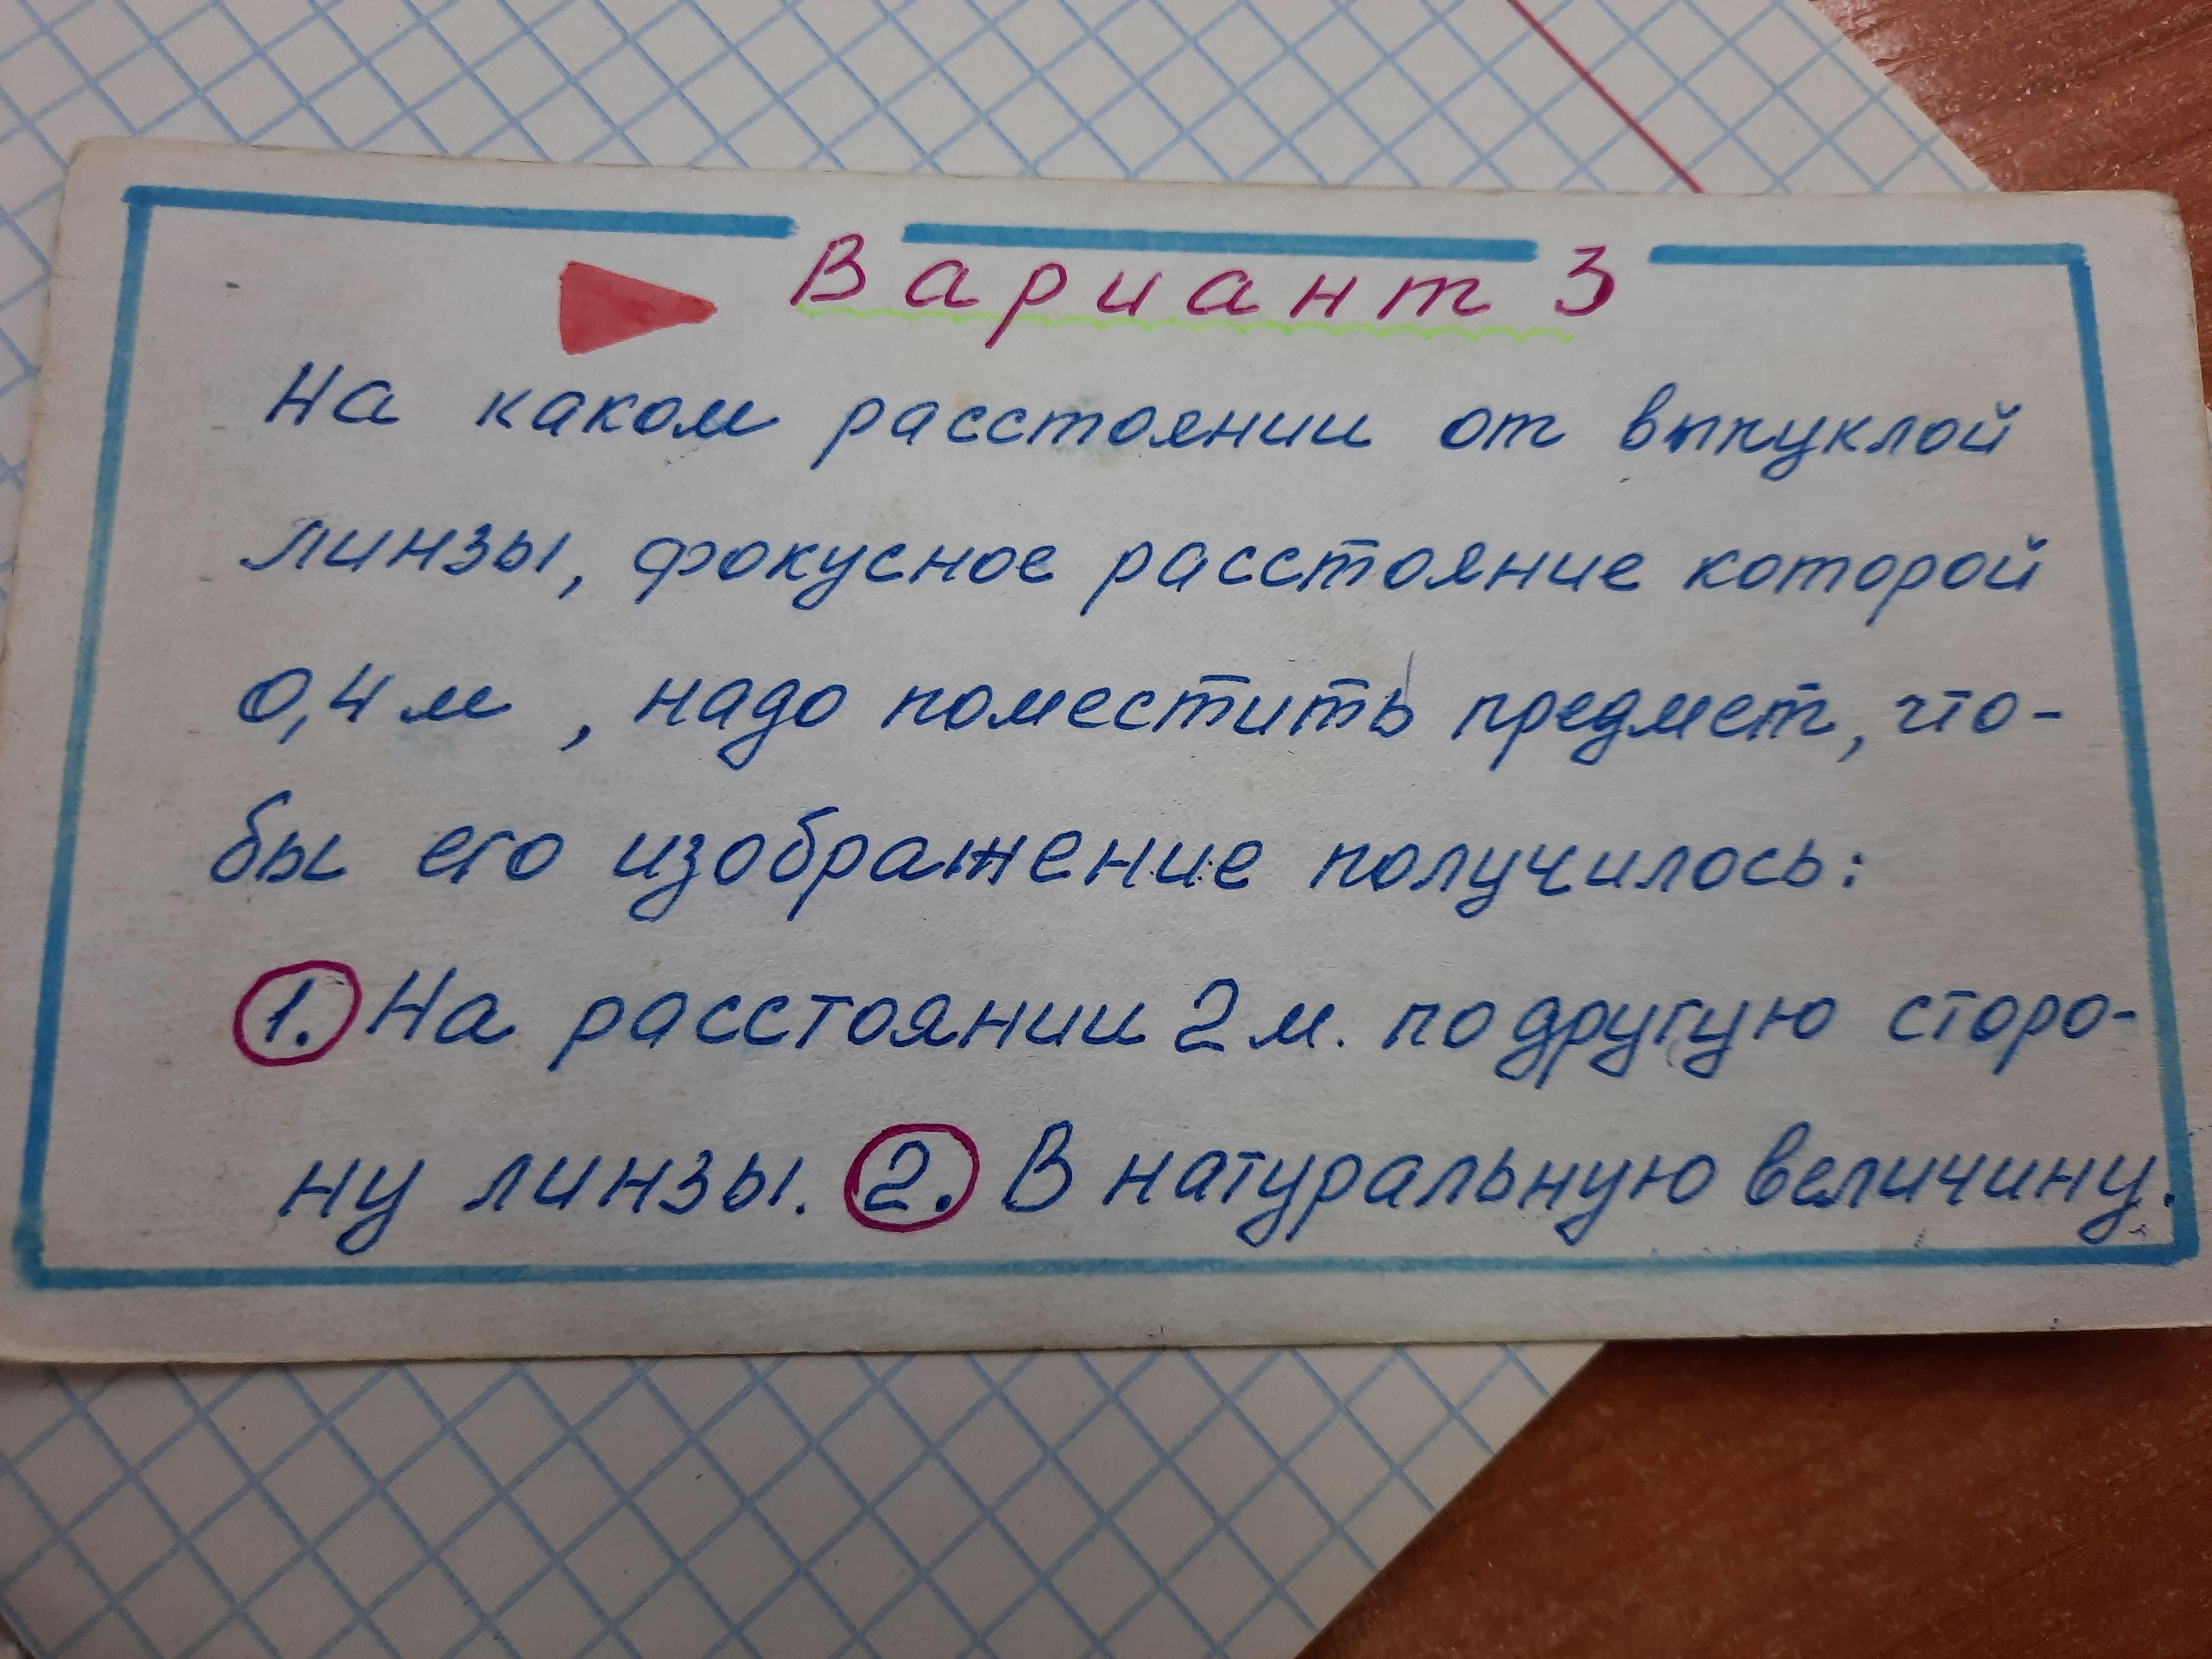 Вариант 3
На каком расстоянии от выпуклой
линзы, фокусное расстояние которой
0,4 м , надо поместить предмет, что-
бы его изображение получилось:
1. На расстоянии 2 м. по другую сторо-
ну линзы. 2. В натуральную величину.